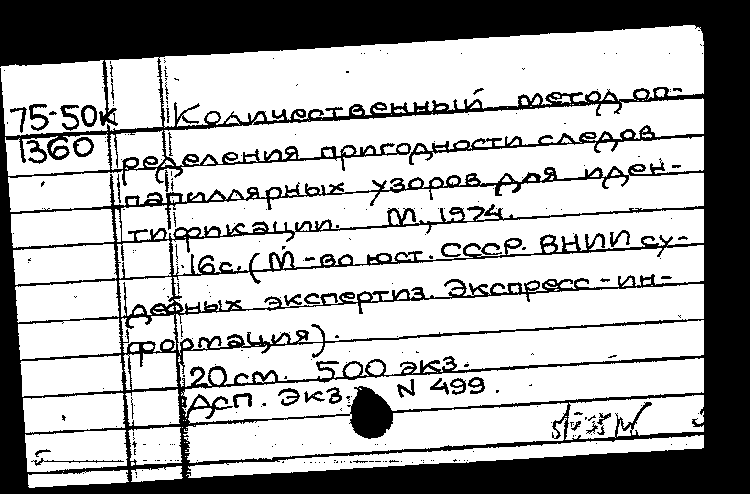 75-50к Количественный метод оп-
1360
ределения пригодности следов
папиллярных узоров для иден-
тификации. М., 1974.
16с. (М-во юст. СССР. ВНИИ су-
дебных экспертиз. Экспресс-ин-
формация).
20 см. 500 экз.
ДСП. Экз. N 499.